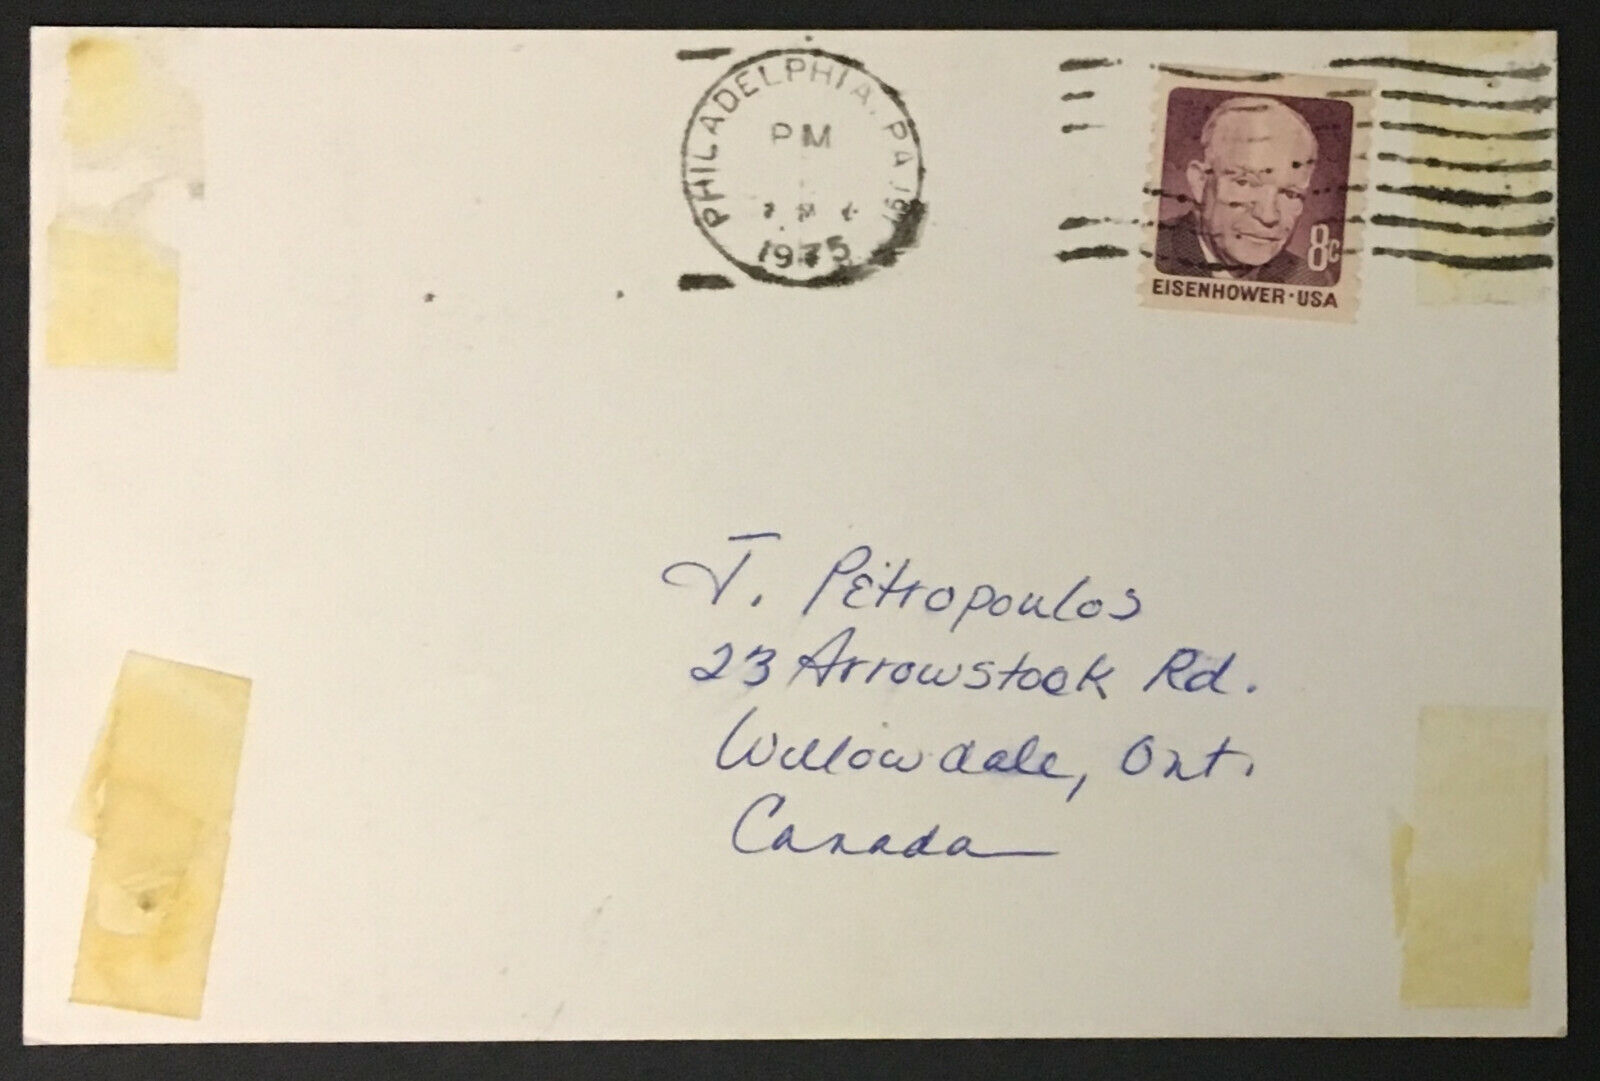 PHILADELPHIA, PA 191
PM
1975
8c
EISENHOWER·USA
J. Petropoulos
23 Arrowstook Rd.
Willowdale, Ont.
Canada